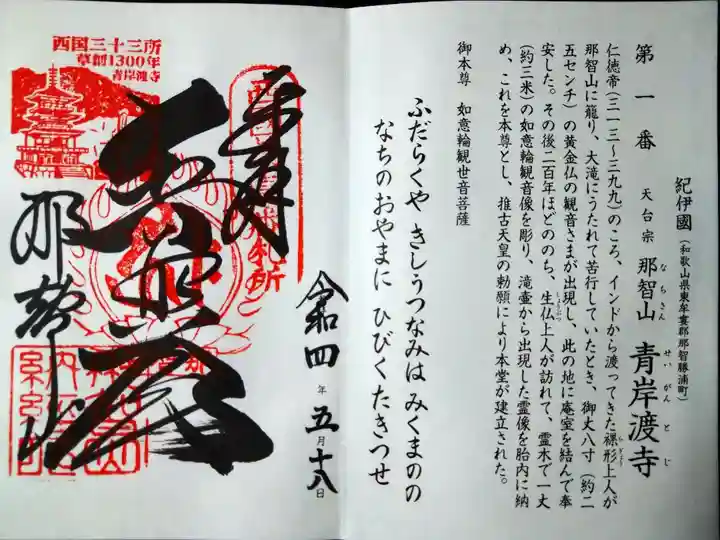 紀伊國（和歌山県東牟婁郡那智勝浦町）
第一番 天台宗 那智山 青岸渡寺
なちさん せいがんとじ
仁徳帝（三一三〜三九九）のころ、インドから渡ってきた裸形上人が
らぎょう
那智山に籠り、大滝にうたれて苦行していたとき、御丈八寸（約二
五センチ）の黄金仏の観音さまが出現し、此の地に庵室を結んで奉
安した。その後二百年ほどのち、生仏上人が訪れて、霊木で一丈
しょうぶつ
（約三米）の如意輪観音像を彫り、滝壷から出現した霊像を胎内に納
め、これを本尊とし、推古天皇の勅願により本堂が建立された。
御本尊 如意輪観世音菩薩
ふだらくや きしうつなみは みくまのの
なちのおやまに ひびくたきつせ
西国三十三所
草創1300年
青岸渡寺
奉拝
那智山
令和四年五月十八日